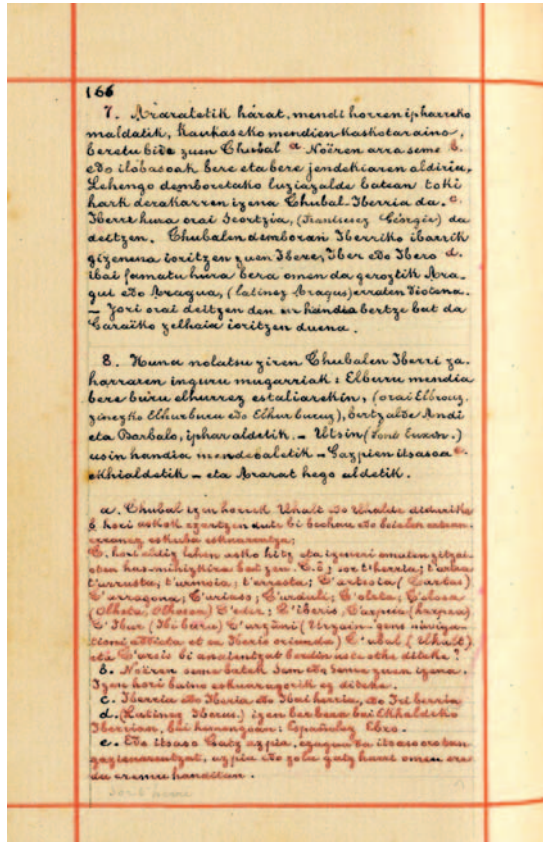 166
7. Araratetik hárat, mendi horren iphar̃eko
maldatik, Kaukaseko mendien kaskotaraino,
beretu bide zuen Chubal a Noëren arra seme b.
edo ilóbasoak bere eta bere jendekiaren aldiria.
Lehengo demboretako luziazalde batean toki
hark derakarren izena Chubal-Iberria da. c.
Iberri hura orai Geortzia, (Franteses Géorgie) da
deitzen. Chubalen demboran Iberriko ibarrik
gizenena ioritzen zuen Ibere, Iber edo Ibero d.
ibai famatu hura bera omen da geroztik Ara-
gui edo Aragua, (latinez Aragus) erraten diotena.
– Jori orai deitzen den ur handia bertze bat da
Garaïko zelhaia ioritzen duena.
8. Huna nolatsu ziren Chubalen Iberri za-
harraren inguru mugarriak: Elburu mendia
bere búru elhurrez estaliarekin, (orai Elbrouz,
zinezko Elhurburu edo Elhur buruz), bertzalde Andi
eta Barbalo, iphar aldetik. – Utsin (Pont Euxin.)
usin handia mendebaletik – Gazpien itsasoa e.
ekhialdetik – eta Ararat hego aldetik.
a. Chubal izen horrek Uhalt edo Uhalde diduriko
hori askok
eskuara
C. hori lehen asko hitz eta izeneri
t'herria; t'urba
t'urrusta; t'urmoia; t'erresta; C'artesia (Cartas)
C'arragona; C'uriass; C'urduli; C'oleta; C'olosa
(Olheta, Olhosoa) C'eder; C'iberis, Caspia (hazpia)
C'Ibur (Ibi buru)
C'ubal (Uhalt)
eta bi anaientzat berdin uste othe diteke?
b. Noëren seme batek Sem edo Seme zuen izena.
Izen hori baino eskuaragorik ez diteke.
c. Iberria edo Iberia edo Ibai herria, edo Iri berria
d. (Latinez Iberus.) izen ber bera bai Ekhaldeko
Iberrian, bai hemengoan: Españolez Ebro.
e. Edo itsaso Gatz azpia, ezagun da itsaso oroban
azpia edo zola gatz harat omen
da eremu handitan.